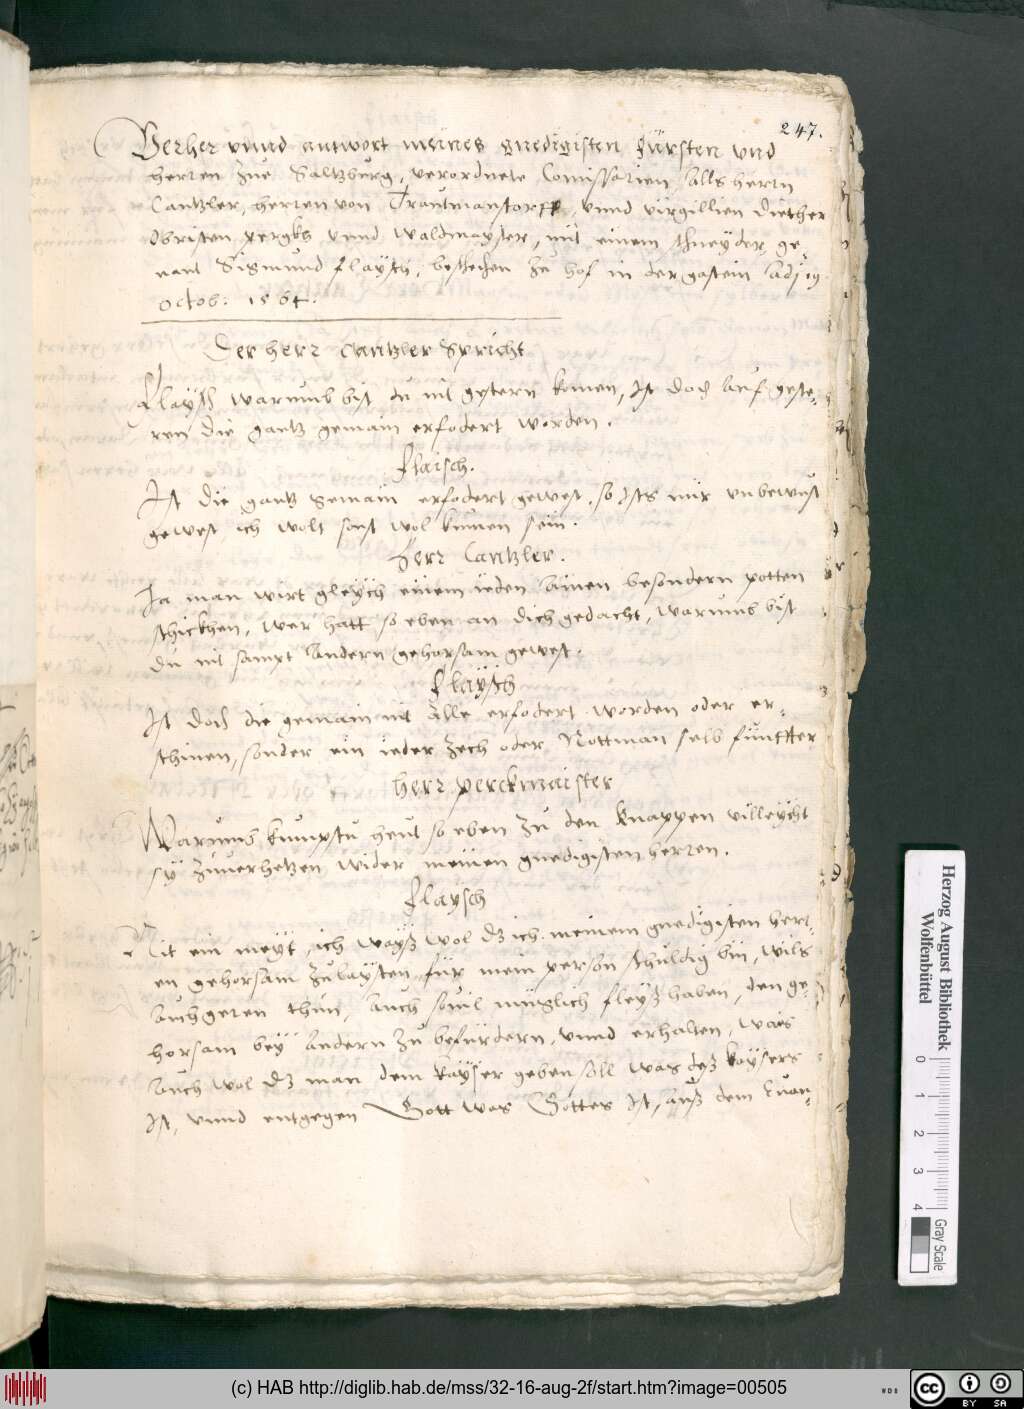 247.
Verher vnnd antwort meines gnedigisten fürsten vnd
herren zue Saltzburg, verordnete Comissarien, alls herrn
Cantzler, herren von Trautmanstorff, vnnd virgillien diether
Obristen pergkh vnnd waldmayster, mit einem schneyder, ge-
nant Sigmund flaysch, beschehen zu hof in der gastein adj 19
Octob: 1564.
Der herr Cantzler Spricht
Flaysch warumb bist du nit gestern komen, Ist doch auf geste-
ren die gantz gemain erfodert worden.
flaisch.
Ist die gantz gemain erfodert gewest, so ists mir vnbewust
gewest ich wolt sonst wol kumen sein.
Herr Cantzler.
Ja man wirt gleych einem ieden ainen besondern potten
schickhen, wer hatt so eben an dich gedacht, warumb bist
du nit sampt andern gehorsam gewest.
flaysch
Ist doch die gemain nit alle erfodert worden oder er-
schinen, sonder ein ieder zech oder Rottman selb fünffter
Herr perckmaister
Warumb kumpstu heut so eben zu den knappen villeycht
sy zuuerhetzen wider meinen gnedigisten herren.
flaysch
Nit ein meyt, ich wayß wol dz ich meinem gnedigisten herr-
en gehorsam zulaysten für mein person schuldig bin, wils
auch geren thun, auch souil müglich fleyß haben, den ge-
horsam bey andern zu befürdern, vnnd erhalten, wais
auch wol dz man dem kayser geben soll was deß kaysers
ist, vnnd entgegen Gott was Gottes ist, auß dem Euan-
Herzog August Bibliothek
Wolfenbüttel
0 1 2 3 4
Gray Scale
(c) HAB http://diglib.hab.de/mss/32-16-aug-2f/start.htm?image=00505
WDB
cc BY SA